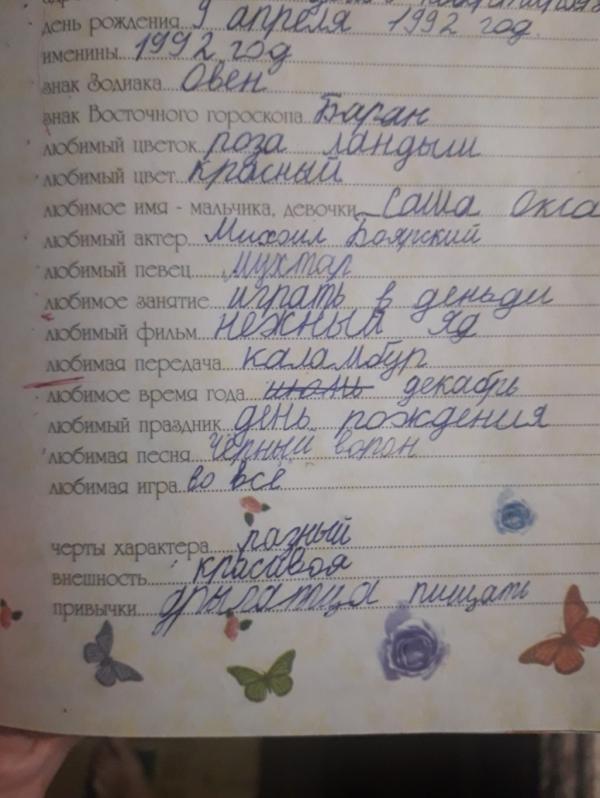 день рождения 9 апреля 1992 год.
именины 1992 год
знак Зодиака Овен
знак Восточного гороскопа Баран
любимый цветок роза ландыш
любимый цвет красный
любимое имя - мальчика, девочки Саша Окса
любимый актер Михоил Боярский
любимый певец Мухтар
любимое занятие играть в деньди
любимый фильм нежный яд
любимая передача каламбур
любимое время года июнь декабрь
любимый праздник день рождения
любимая песня чёрный ворон
любимая игра во всё
черты характера разный
внешность красавая
привычки дрыгатца пищать